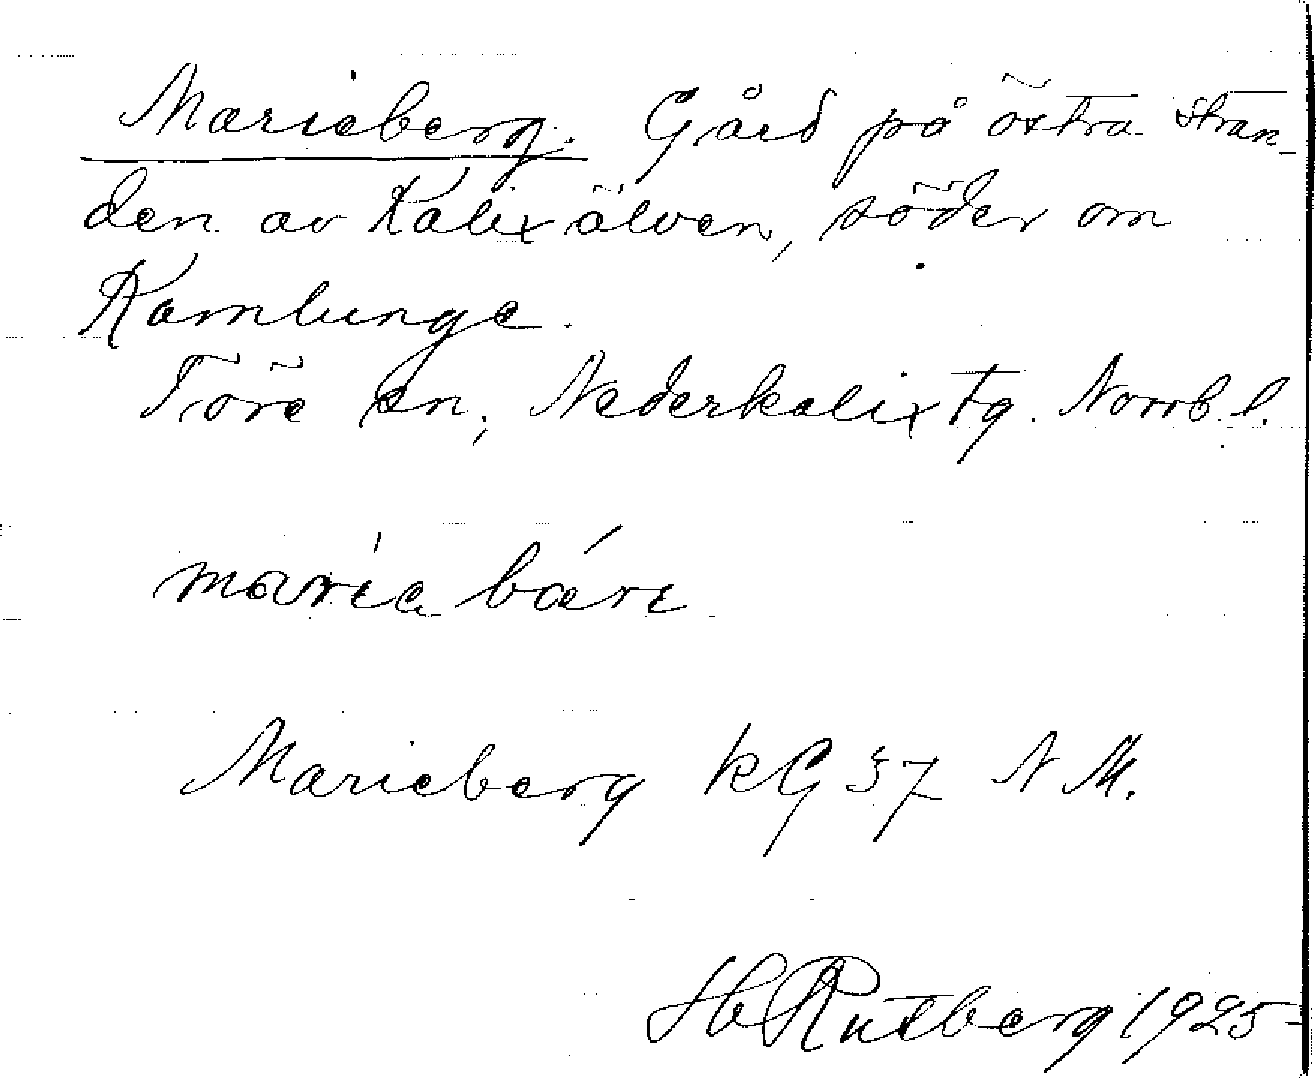 Marieberg. Gård på östra stran-
den av Kalixälven, söder om
Kamlunge.
Töre sn, Nederkalix tg. Norrb. l.
maria bäri
Marieberg KG 37 N M.
H Rutberg 1925